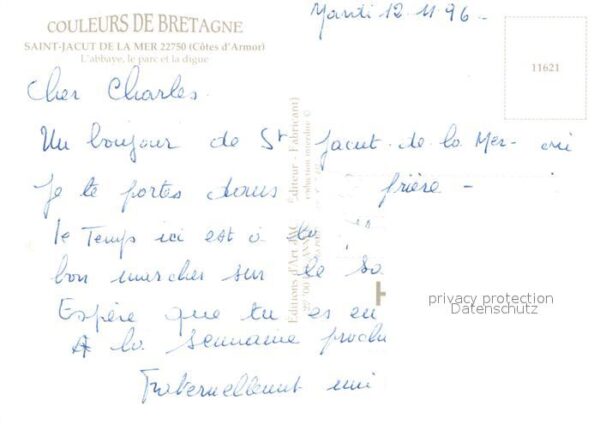 COULEURS DE BRETAGNE
SAINT-JACUT DE LA MER 22750 (Côtes d'Armor)
L'abbaye, le parc et la digue
Mardi 12.11.96 -
11621
Cher Charles
Un bonjour de St Jacut-de-la Mer- où
Je te portes dans prière -
le Temps ici est à la
bon marcher sur le sa
Espère que tu es en
A la semaine procha
Fraternellement uni
Editions d'Art JACK
Editeur - Fabricant)
production interdite ©
privacy protection
Datenschutz